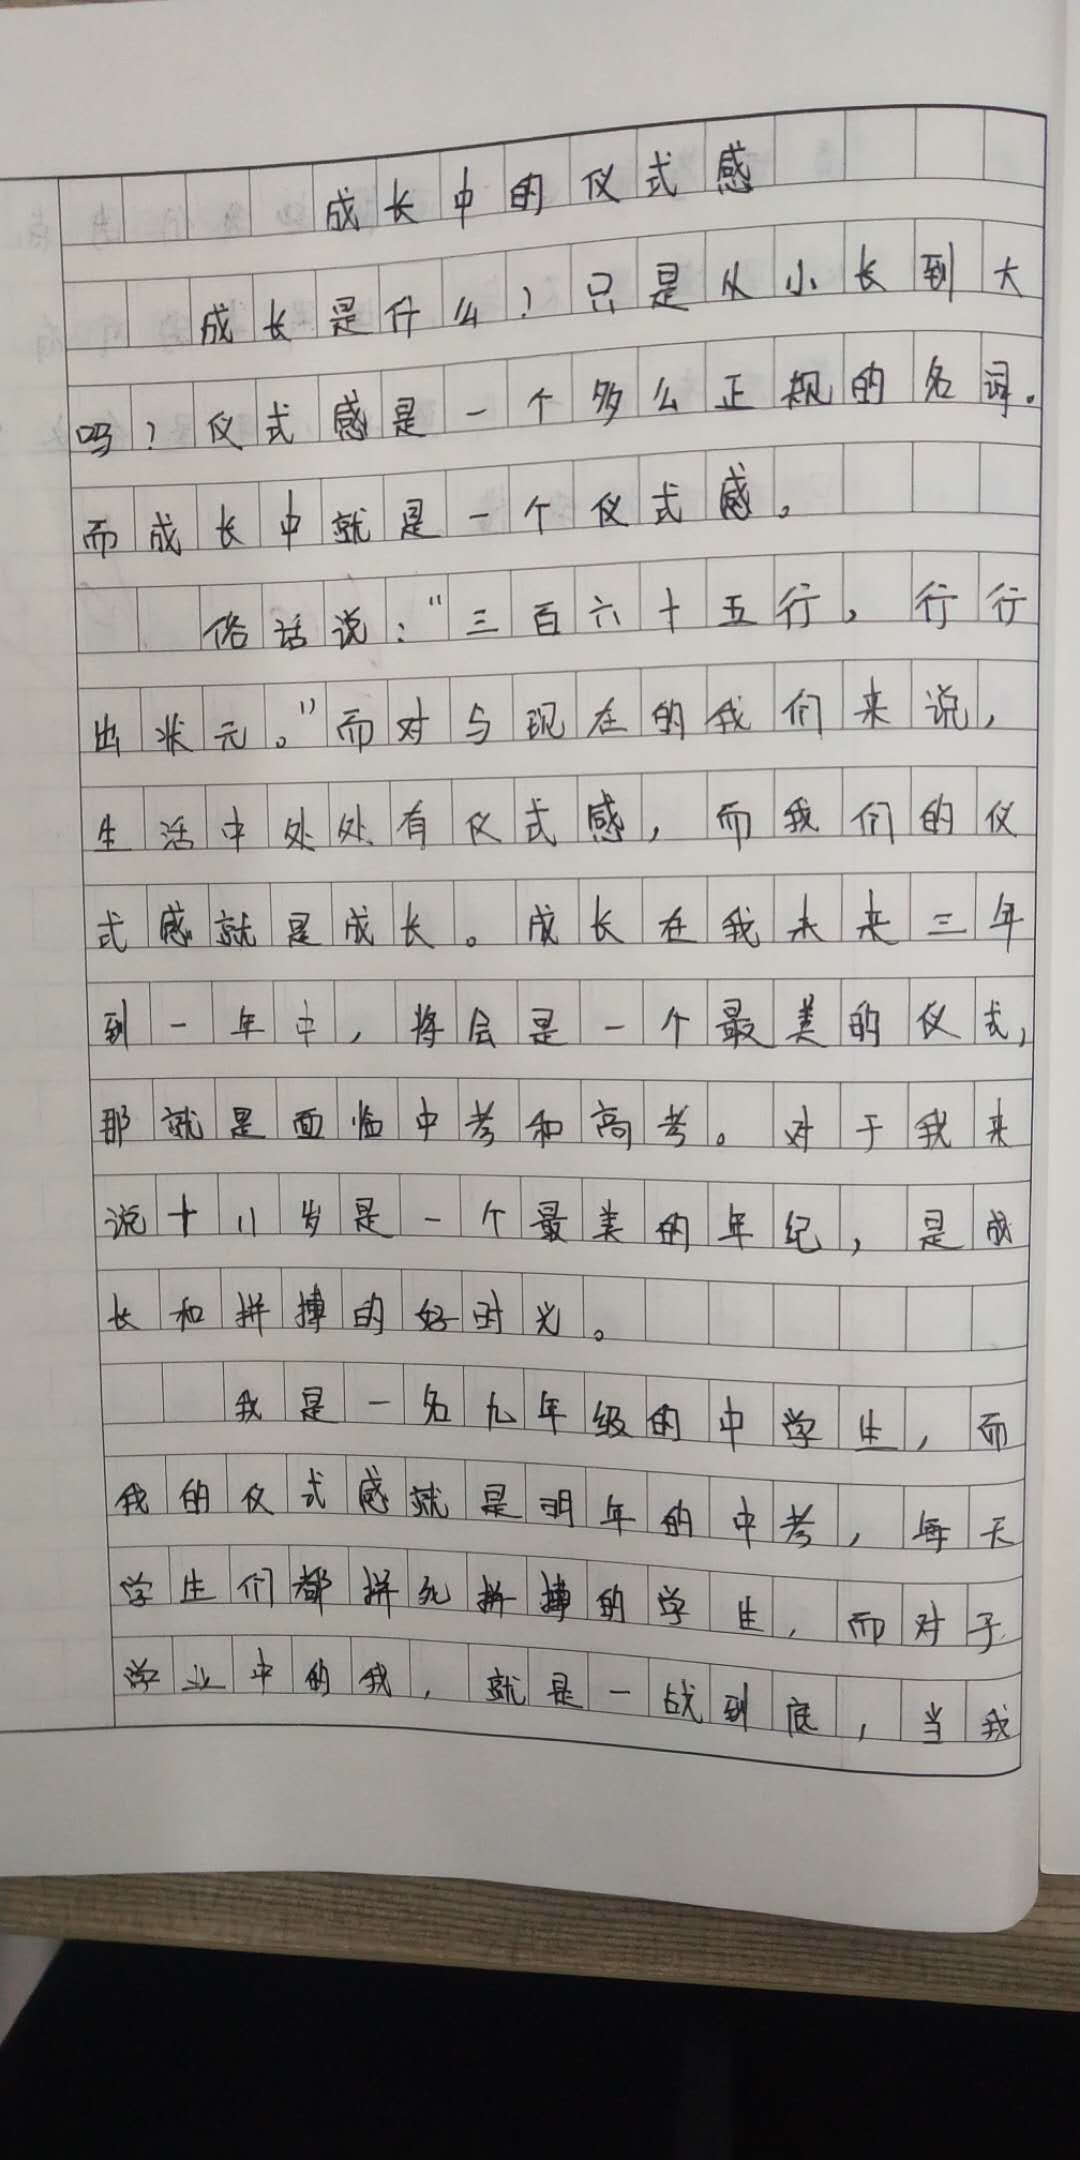 成长中的仪式感
成长是什么？只是从小长到大
吗？仪式感是一个多么正规的名词。
而成长中就是一个仪式感。
俗话说："三百六十五行，行行
出状元。"而对与现在的我们来说，
生活中处处有仪式感，而我们的仪
式感就是成长。成长在我未来三年
到一年中，将会是一个最美的仪式，
那就是面临中考和高考。对于我来
说十八岁是一个最美的年纪，是成
长和拼搏的好时光。
我是一名九年级的中学生，而
我的仪式感就是明年的中考，每天
学生们都拼死拼搏的学生，而对于
学业中的我，就是一战到底，当我